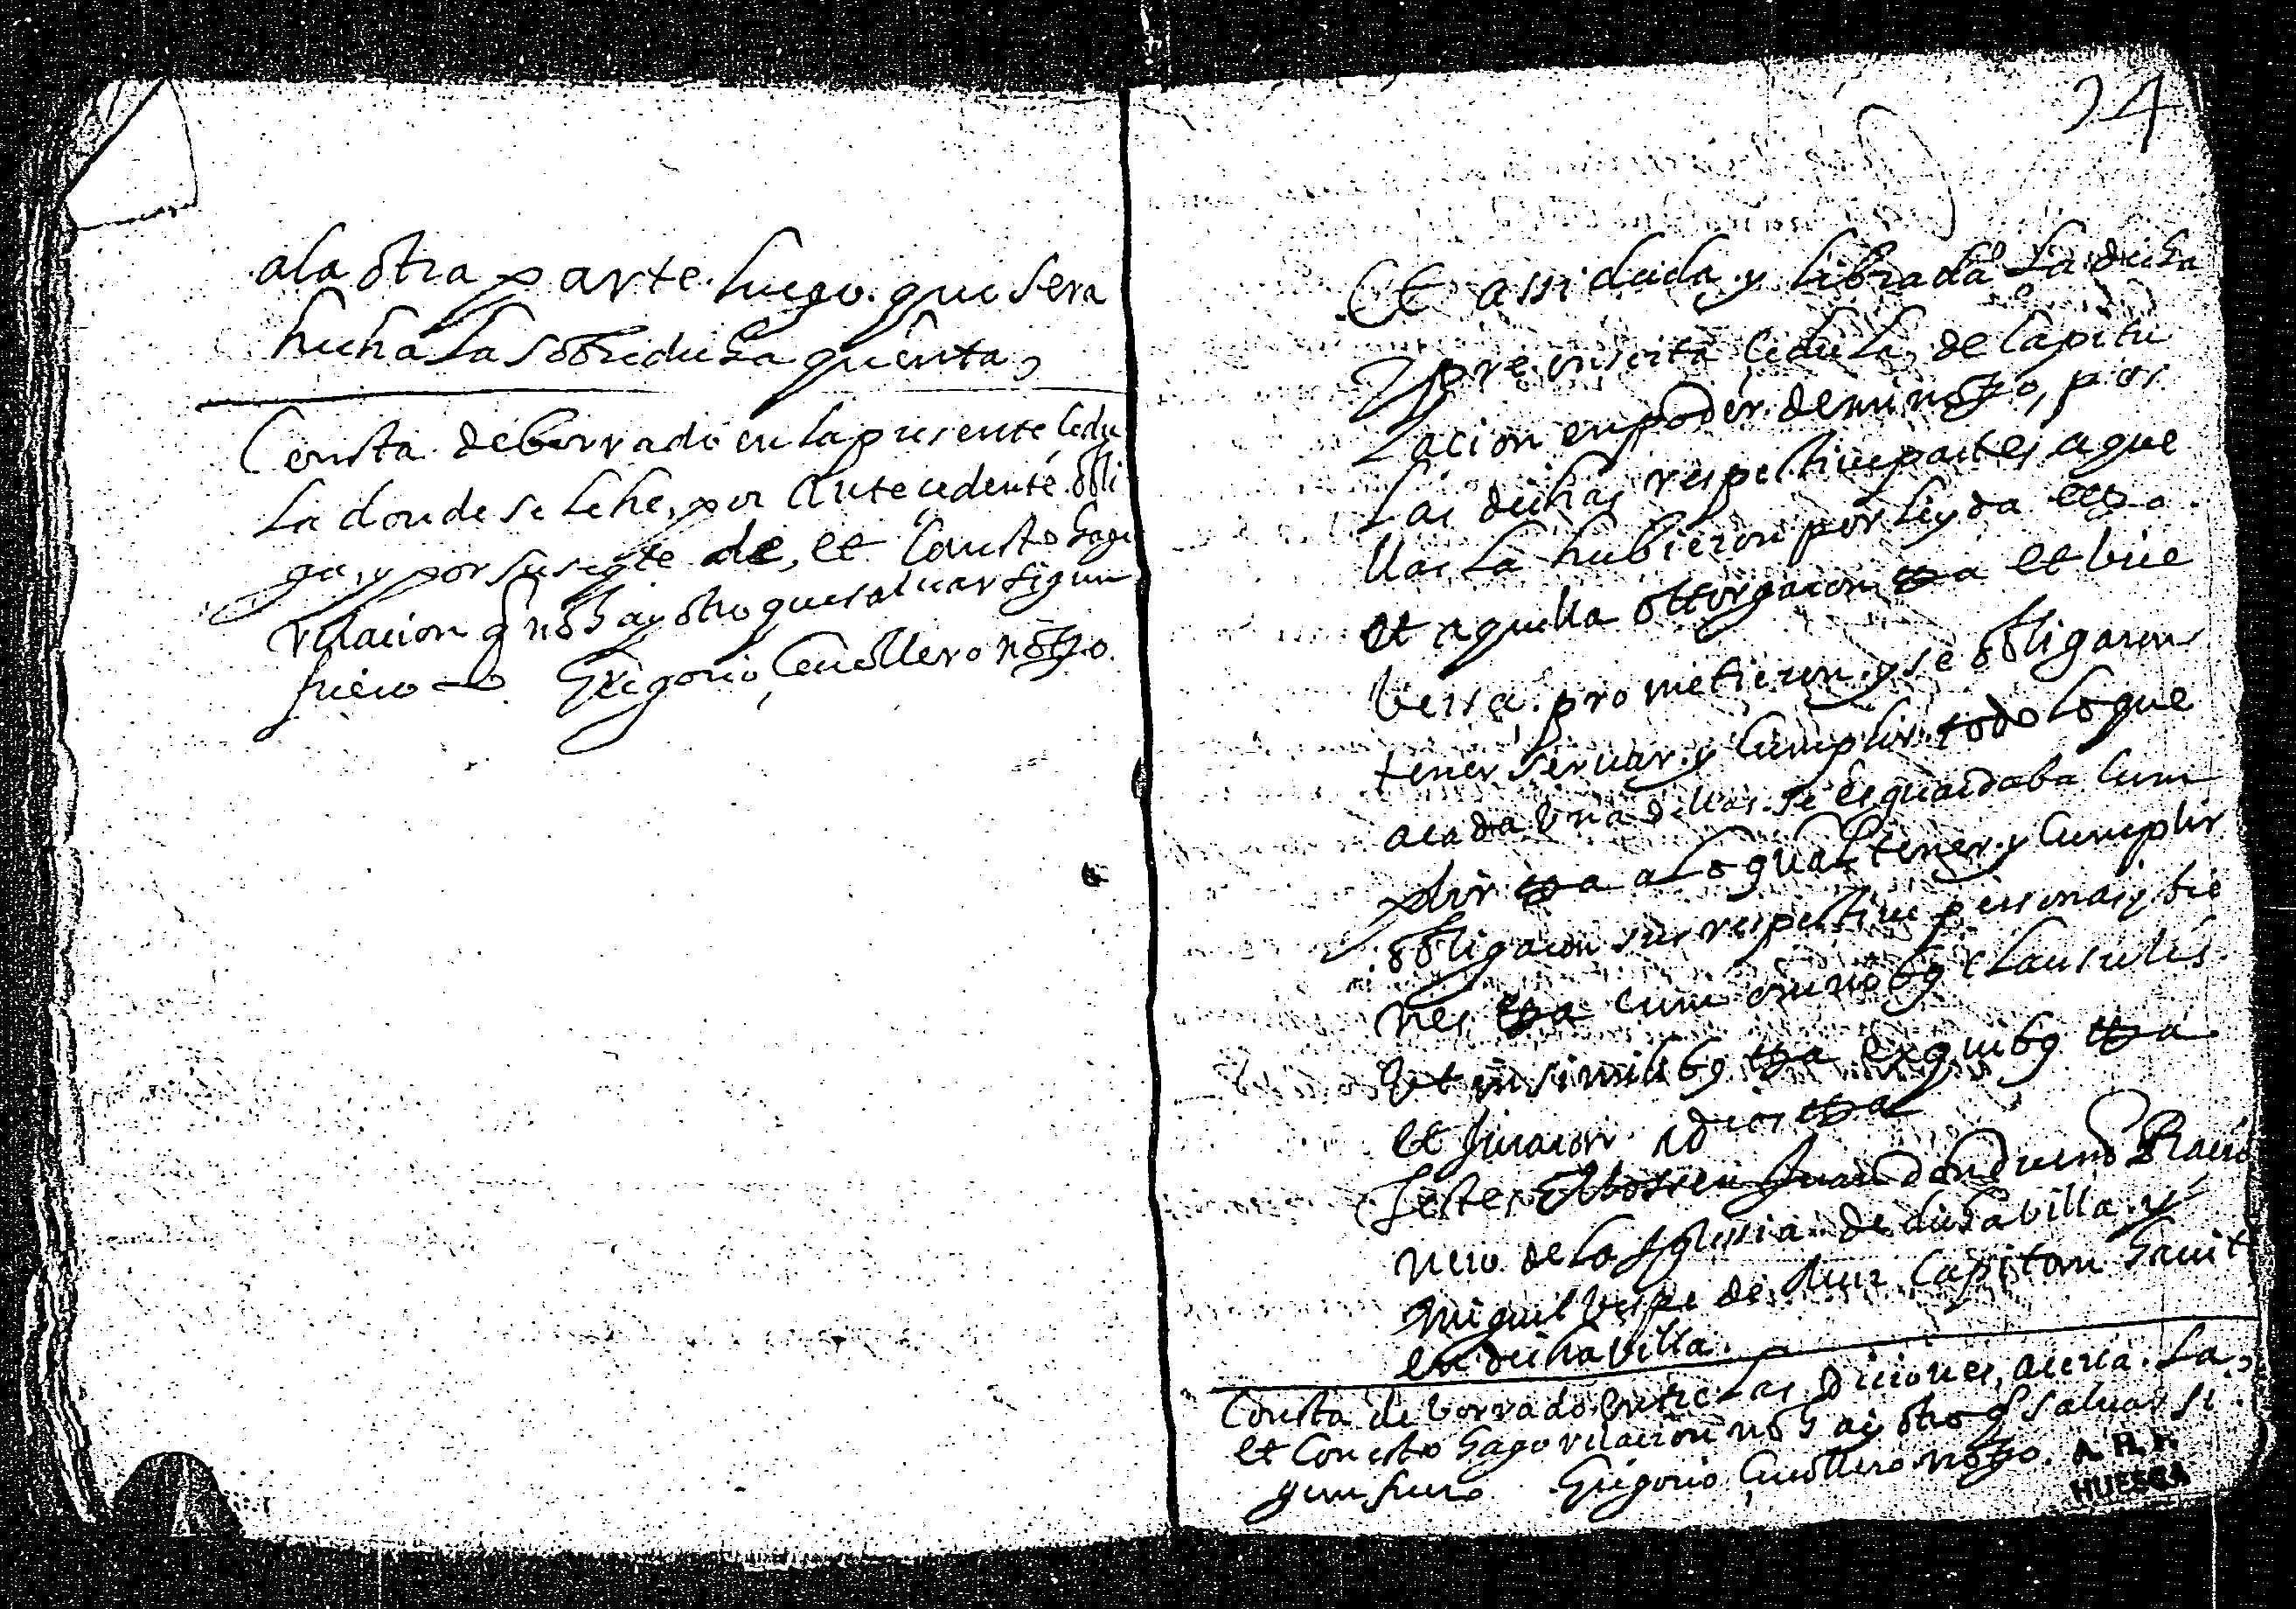 ala otra parte luego que sera
hecha la sobredicha quenta,
Consta de borrado en la presente cedu
la donde se lehe, por Antecedente obli
ga, y por susigte de, et Con esto hago
relacion q no hay otro que saluar sigun
fuero Gregorio Cenollero notto.
94
Et assi dada y librada la dicha
preinserta cedula de capitu
lacion en poder de mi notto, por
las dichas respectiue partes aque
llas la hubieron por leyda etta
et aquella ottorgaron etta et bice
bersa prometieron y se obligaron
tener seruar y cumplir todo lo que
acada vna dellas se esguardaba cum
plir etta a lo qual tener y cumplir
obligaron sus respectiue personas y bie
nes etta cum omnibq clausulis
et in similibq etta ex quibq etta
et juraron a dios etta
Testes Mossen Juan Racio
nero de la Iglesia de dicha villa y
Miguel Vespe de Capitan hauit
en dicha villa.
Consta de borrado entre las diciones, acerca. la,
et Con esto hago relacion no hay otro q saluar si
gun fuero Gregorio Cenollero notto.
A. H. P.
HUESCA